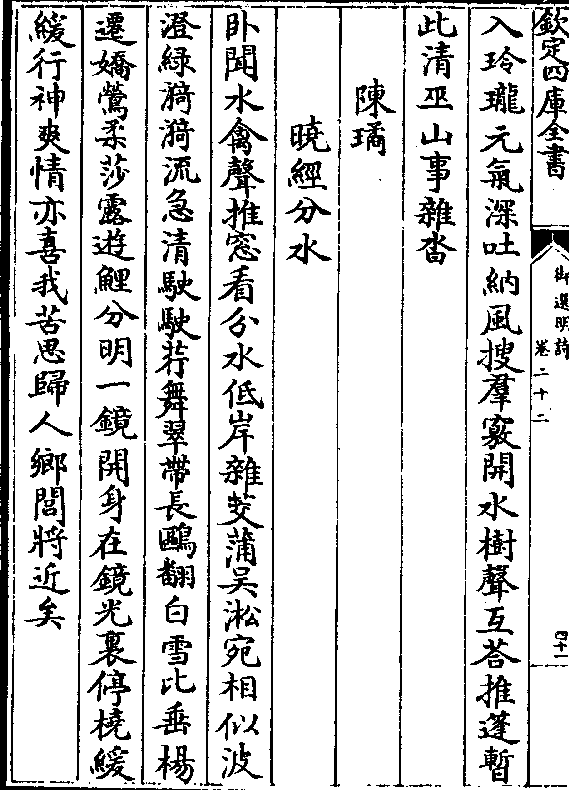 欽定四庫全書
御選明詩
卷二十二
四十一
入玲瓏元氣深吐納風搜羣竅開水樹聲互荅推蓬暫
此清巫山事雜沓
陳璚
曉經分水
卧聞水禽聲推窓看分水低岸雜茭蒲吴淞宛相似波
澄綠漪漪流急清駛駛荇舞翠帶長鷗翻白雪比垂楊
遷嬌鶯柔莎露遊鯉分明一鏡開身在鏡光裏停橈緩
緩行神爽情亦喜我苦思歸人鄉閭將近矣